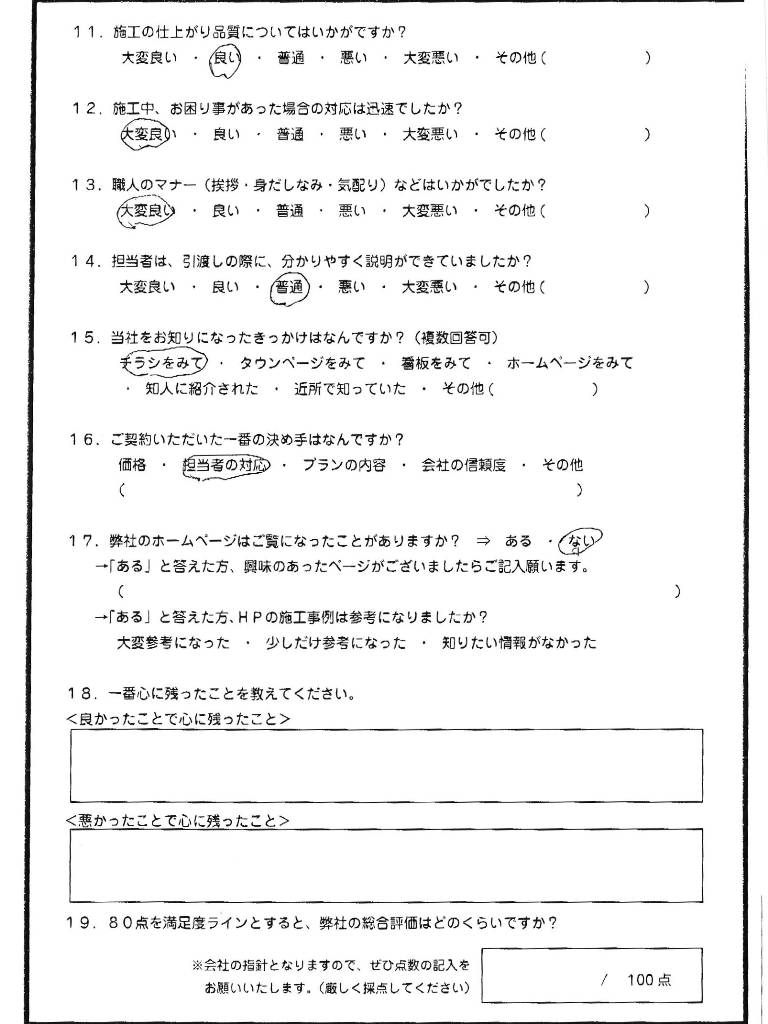 １１．施工の仕上がり品質についてはいかがですか？
大変良い ・ 良い ・ 普通 ・ 悪い ・ 大変悪い ・ その他（ ）
１２．施工中、お困り事があった場合の対応は迅速でしたか？
大変良い ・ 良い ・ 普通 ・ 悪い ・ 大変悪い ・ その他（ ）
１３．職人のマナー（挨拶・身だしなみ・気配り）などはいかがでしたか？
大変良い ・ 良い ・ 普通 ・ 悪い ・ 大変悪い ・ その他（ ）
１４．担当者は、引渡しの際に、分かりやすく説明ができていましたか？
大変良い ・ 良い ・ 普通 ・ 悪い ・ 大変悪い ・ その他（ ）
１５．当社をお知りになったきっかけはなんですか？（複数回答可）
チラシをみて ・ タウンページをみて ・ 看板をみて ・ ホームページをみて
・ 知人に紹介された ・ 近所で知っていた ・ その他（ ）
１６．ご契約いただいた一番の決め手はなんですか？
価格 ・ 担当者の対応 ・ プランの内容 ・ 会社の信頼度 ・ その他
（ ）
１７．弊社のホームページはご覧になったことがありますか？ ⇒ ある ・ ない
→「ある」と答えた方、興味のあったページがございましたらご記入願います。
（ ）
→「ある」と答えた方、ＨＰの施工事例は参考になりましたか？
大変参考になった ・ 少しだけ参考になった ・ 知りたい情報がなかった
１８．一番心に残ったことを教えてください。
＜良かったことで心に残ったこと＞
＜悪かったことで心に残ったこと＞
１９．８０点を満足度ラインとすると、弊社の総合評価はどのくらいですか？
※会社の指針となりますので、ぜひ点数の記入を
お願いいたします。（厳しく採点してください）
/ 100点